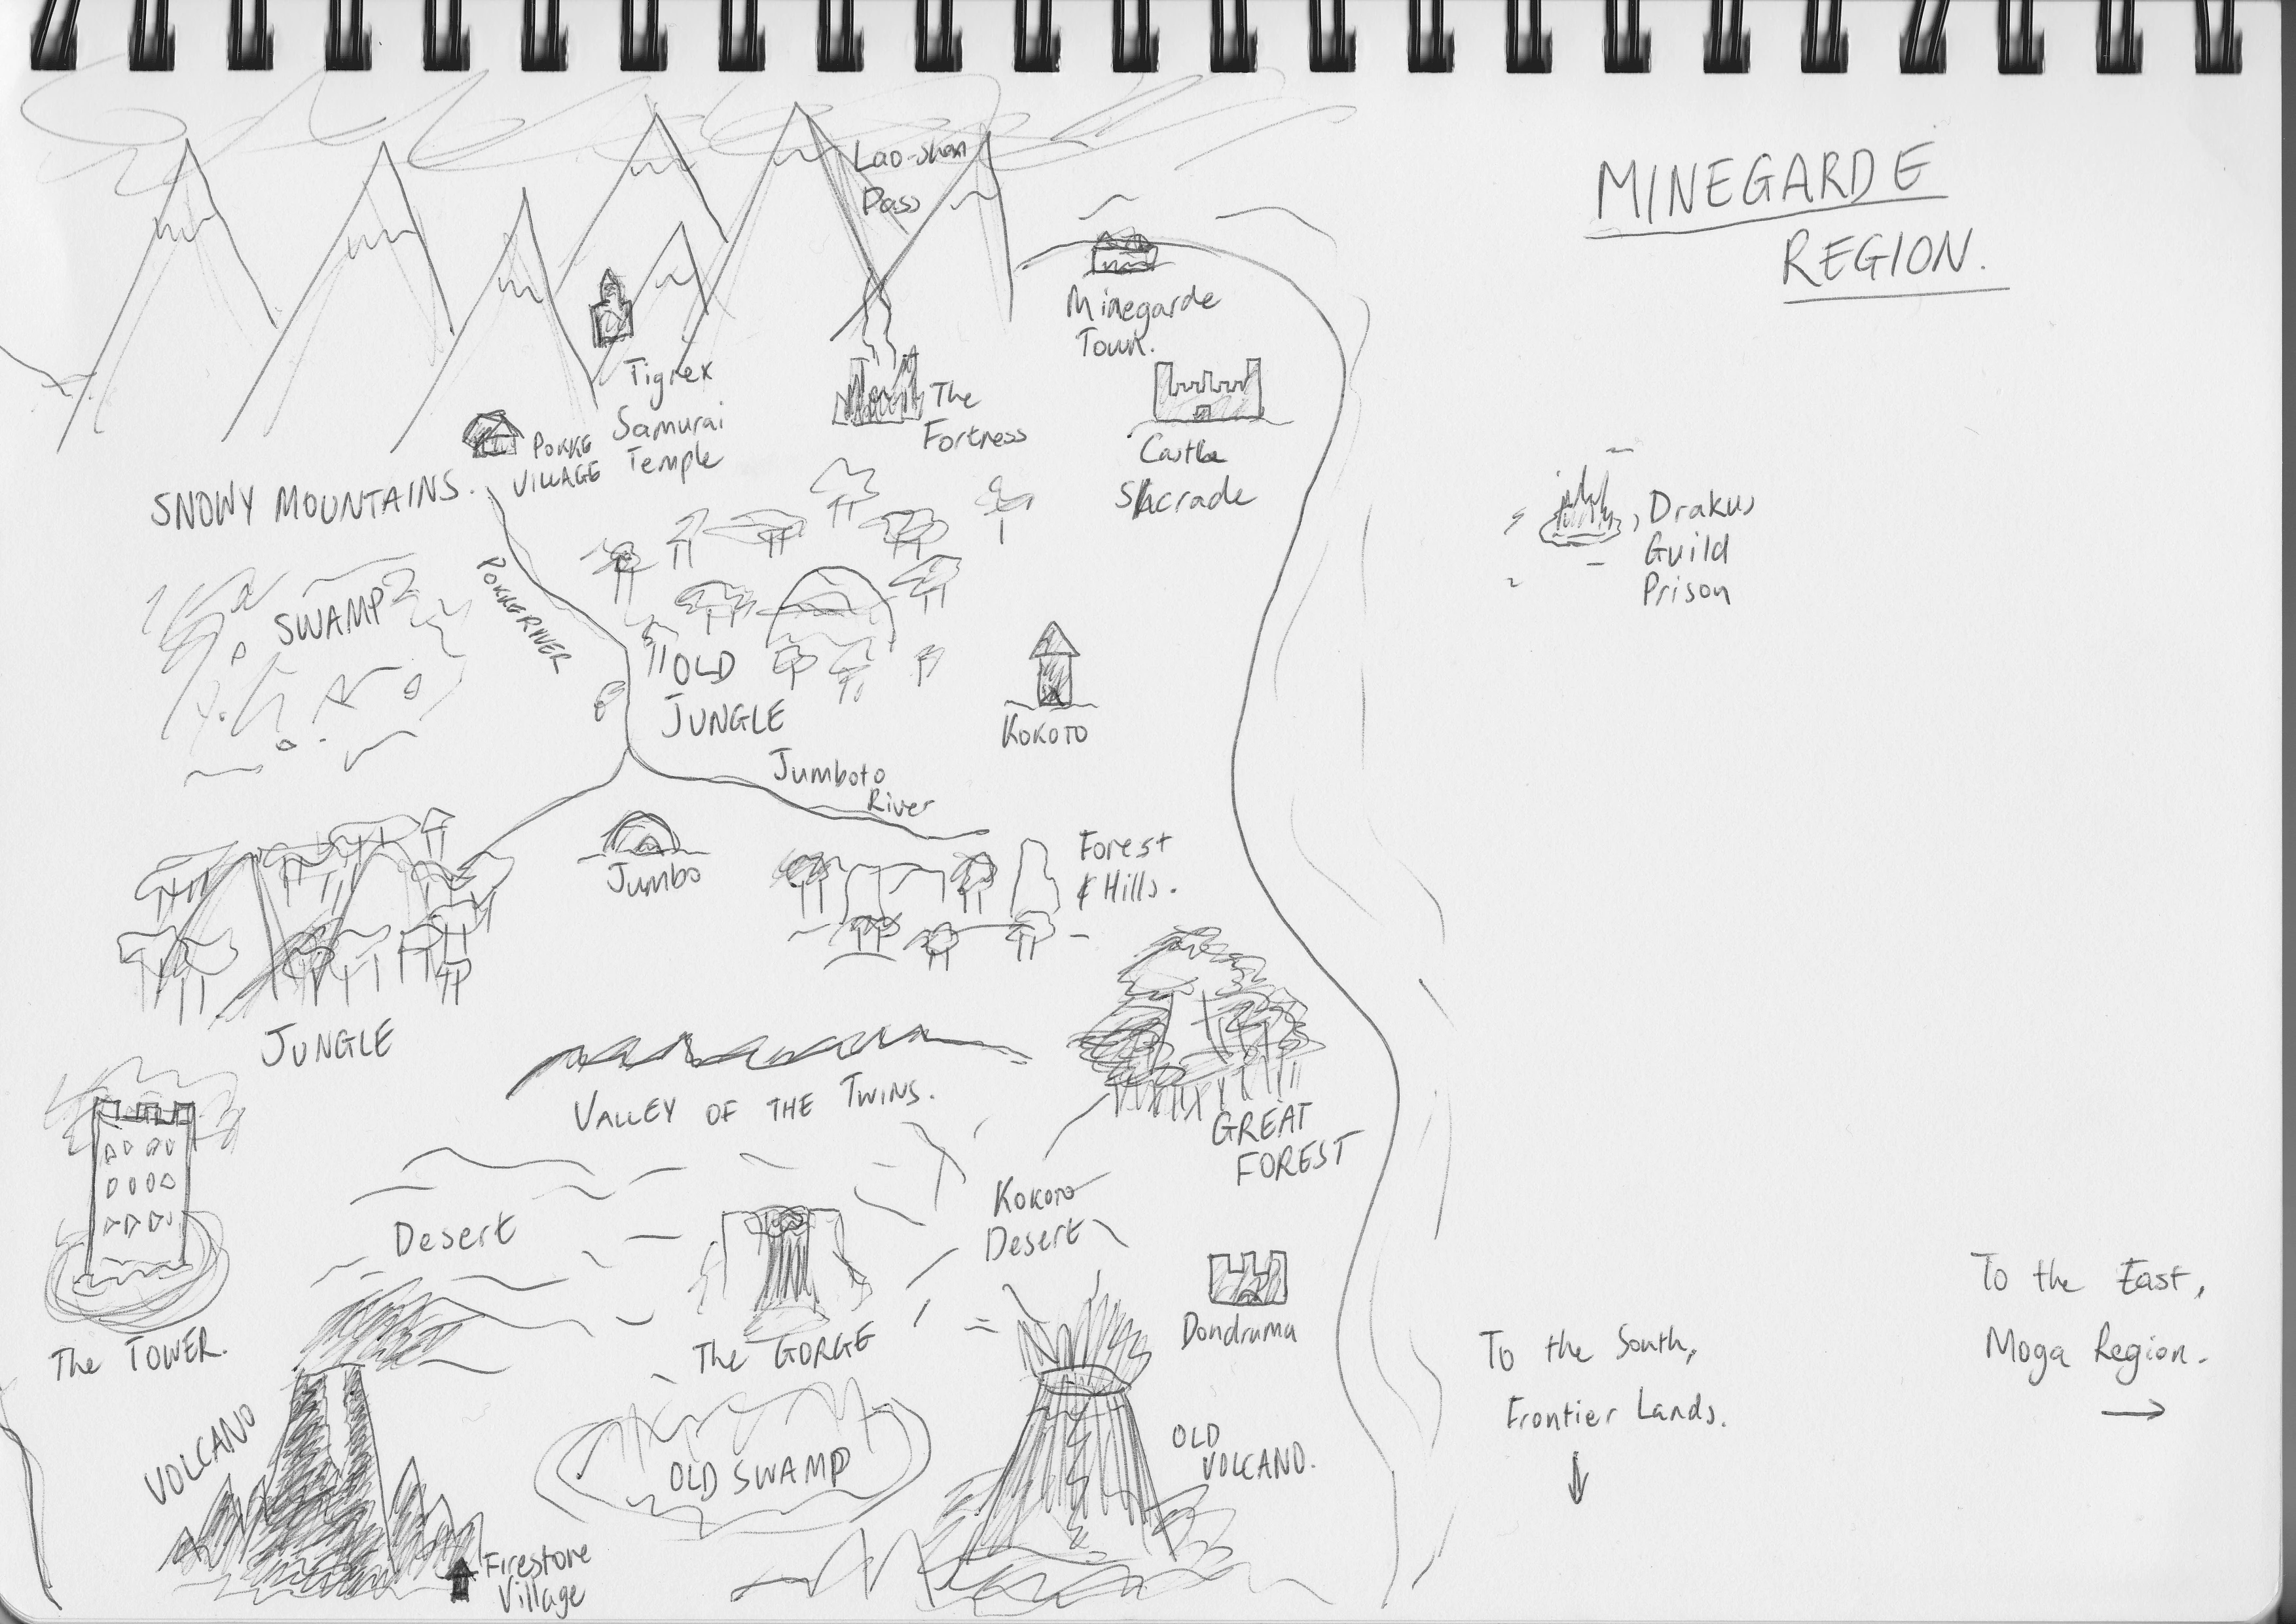 MINEGARDE
REGION.
Lao-Shan
Pass
Minegarde
Town.
Tigrex
Samurai
Temple
The
Fortness
Castle
Shcrade
POKKE
VILLAGE
SNOWY MOUNTAINS.
Drakus
Guild
Prison
SWAMP
POKKE RIVER
OLD
JUNGLE
KOKOTO
Jumboto
River
Jumbo
Forest
& Hills.
JUNGLE
VALLEY OF THE TWINS.
GREAT
FOREST
Desert
KOKOTO
Desert
The TOWER.
The GORGE
Dondruma
To the East,
Moga Region.
To the South,
Frontier Lands.
VOLCANO
OLD SWAMP
OLD
VOLCANO.
Firestone
Village